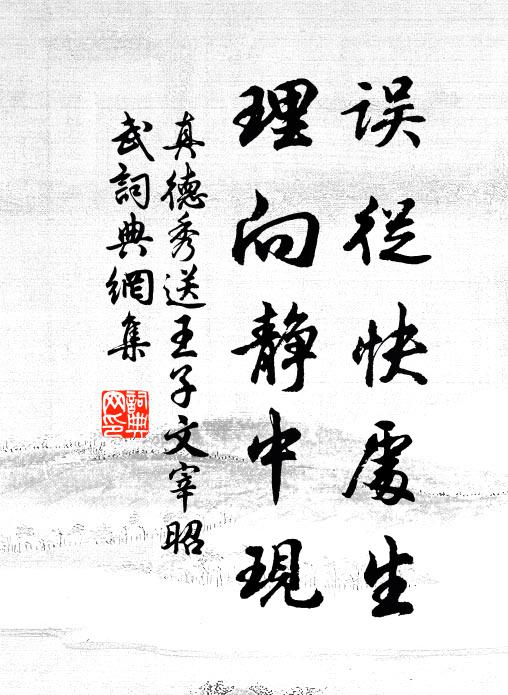 误從快處生
理向静中現
真德秀送王子文宰昭
武詞典網集
詞典
网印